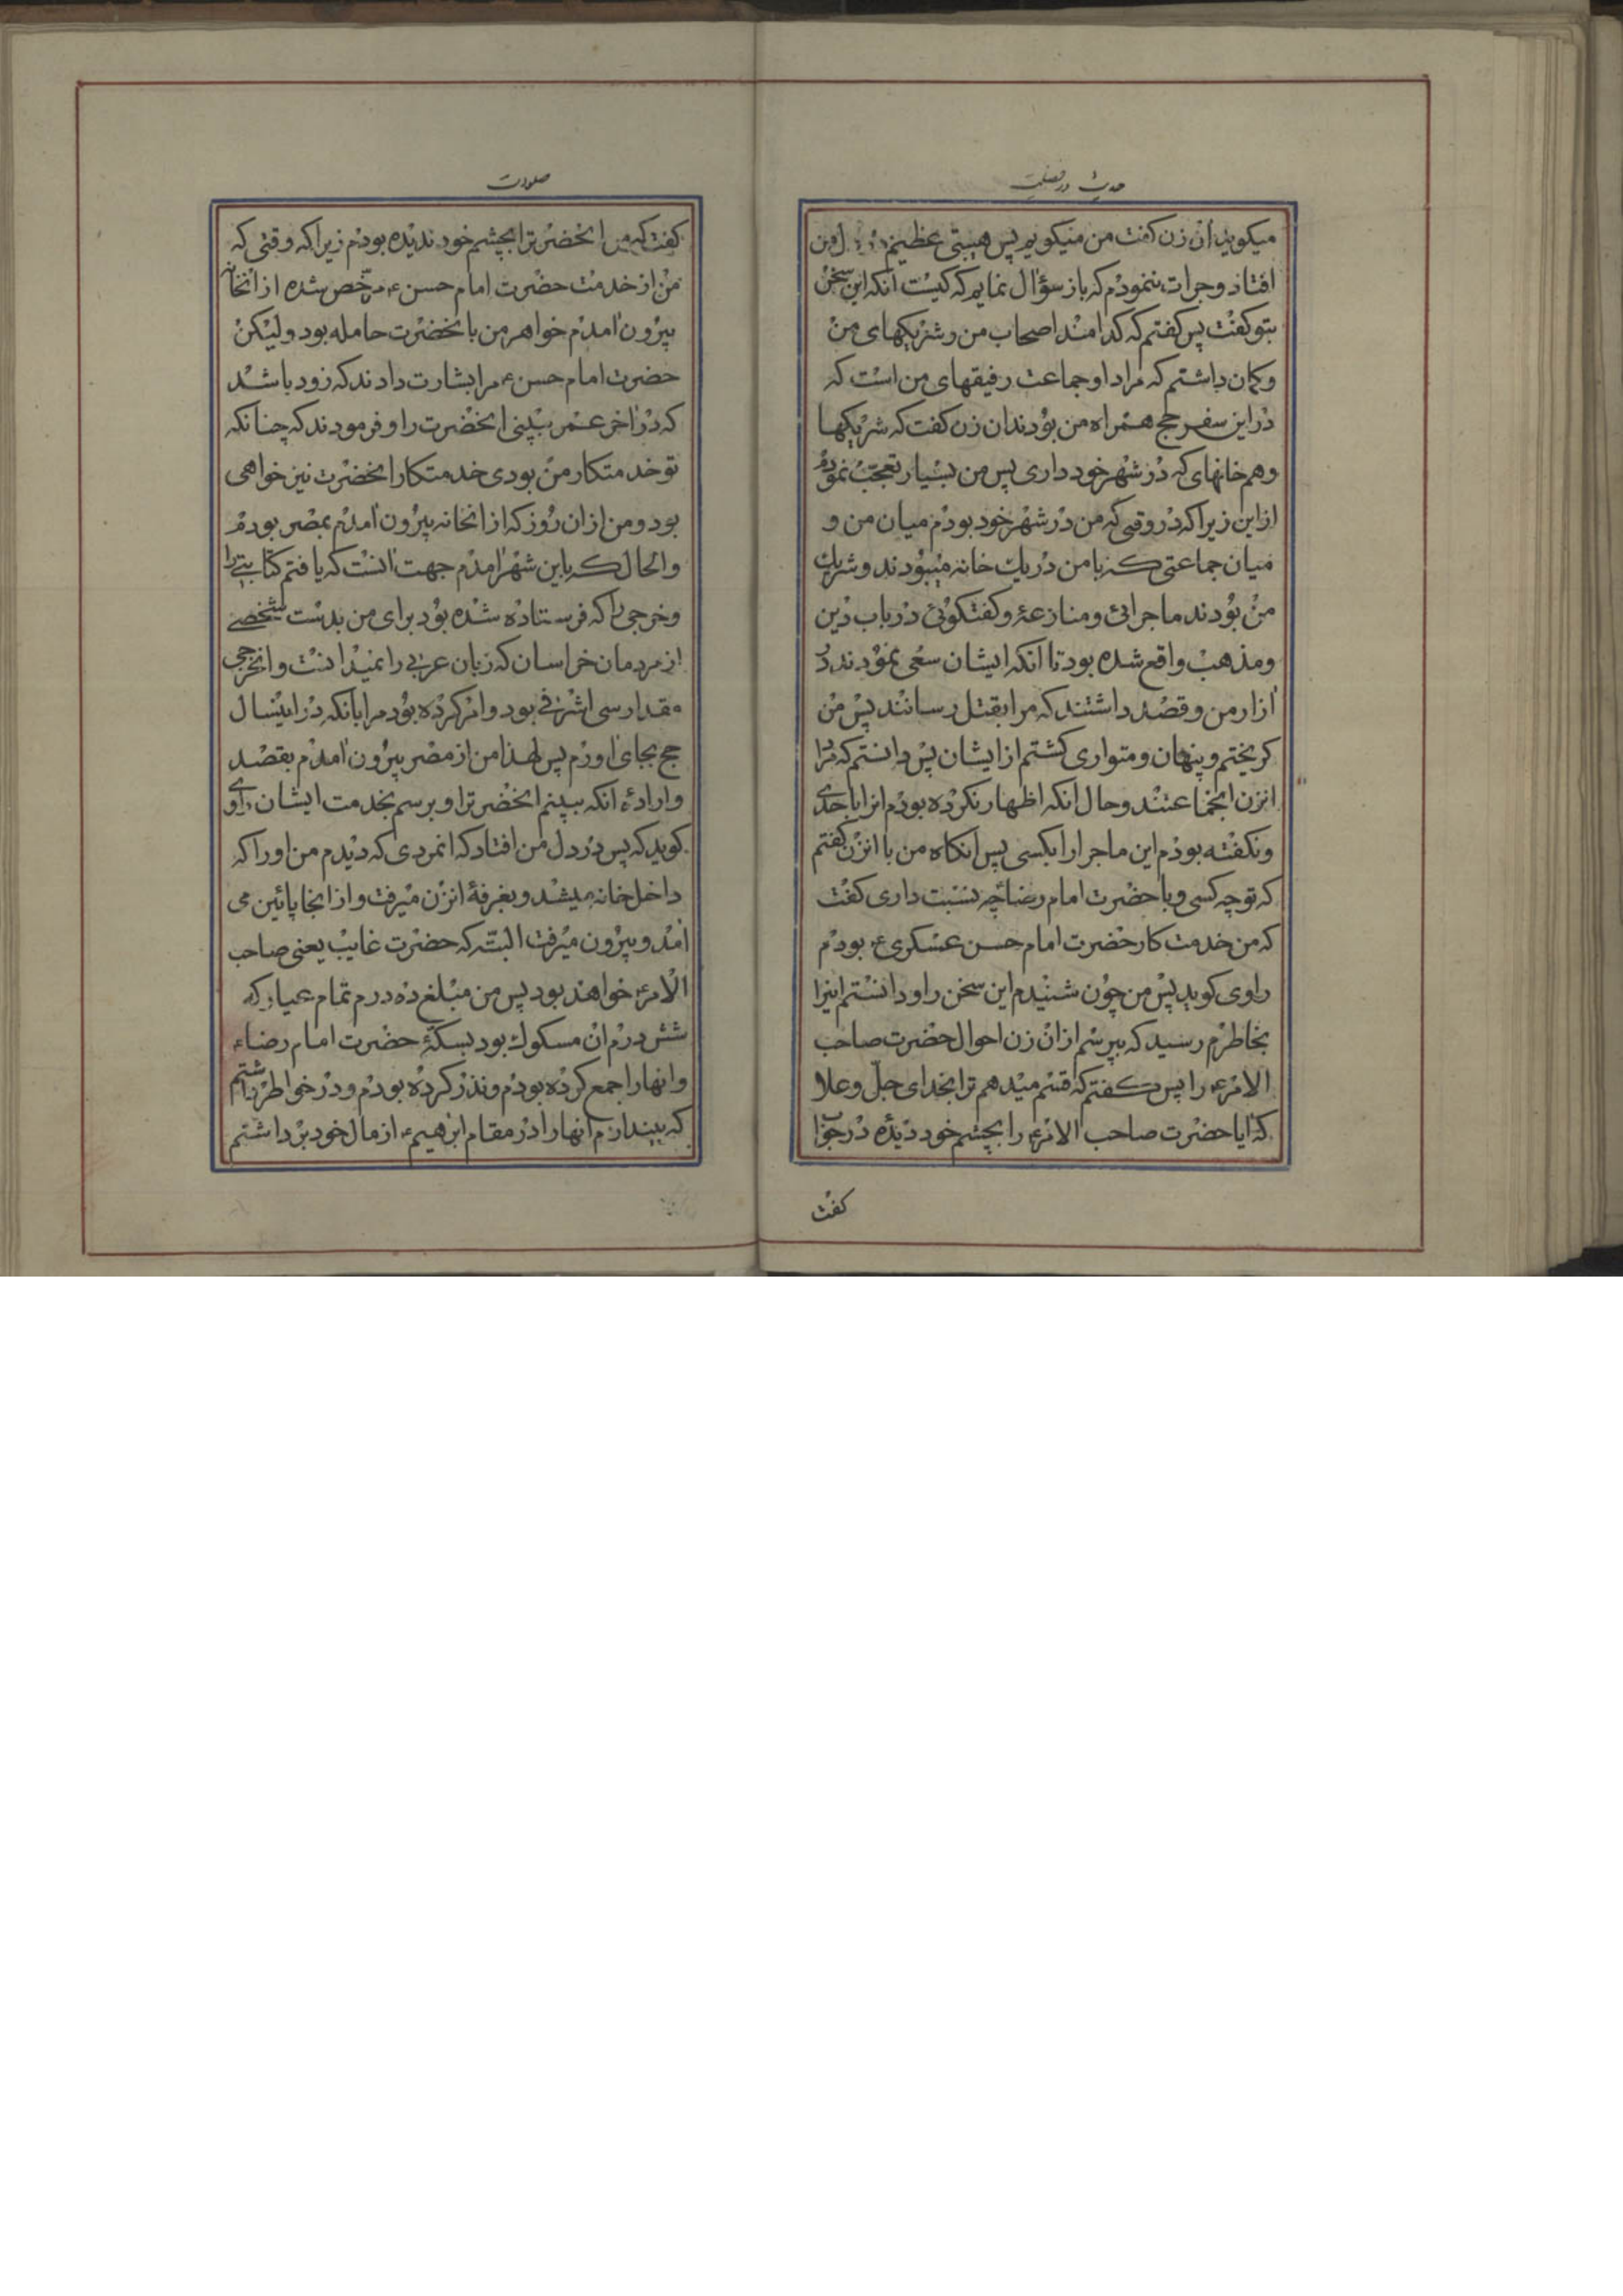 حدیث در فضلیت
میکوید ان زن کفت من میکویم پس هیبتی عظیم در دل من
افتاد وجرات ننمودم که باز سؤال نمایم که کیست انکه این سخن
بتو کفت پس کفتم که کدامند اصحاب من وشریکهای من
وکمان داشتم که مراد او جماعت رفیقهای من است که
در این سفر حج همراه من بودند ان زن کفت که شریکها
وهم خانهای که در شهر خود داری پس من بسیار تعجب نمودم
از این زیرا که در وقتی که من در شهر خود بودم میان من و
میان جماعتی که با من در یک خانه میبودند وشریک
من بودند ماجرائی ومنازعۀ وکفتکوئی در باب دین
ومذهب واقع شده بود تا انکه ایشان سعی نمودند در
ازار من وقصد داشتند که مرا بقتل رسانند پس من
کریختم وپنهان ومتواری کشتم از ایشان پس دانستم که مراد
انزن انجماعتند وحال انکه اظهار نکرده بودم انرا باحدی
ونکفته بودم این ماجرا را بکسی پس انکاه من با انزن کفتم
که تو چه کسی وبا حضرت امام رضا چه نسبت داری کفت
که من خدمت کار حضرت امام حسن عسکری ع بودم
راوی کوید پس من چون شنیدم این سخن را ودانستم اینرا
بخاطرم رسید که بپرسم از ان زن احوال حضرت صاحب
الامر ع را پس کفتم که قسم میدهم ترا بخدای جل وعلا
که ایا حضرت صاحب الامر ع را بچشم خود دیدۀ در جواب
کفت
صلوات
کفت که من انحضرترا بچشم خود ندیده بودم زیرا که وقتی که
من از خدمت حضرت امام حسن ع مرخص شده از انخانه
بیرون امدم خواهر من بانحضرت حامله بود ولیکن
حضرت امام حسن ع مرا بشارت دادند که زود باشد
که در اخر عمر ببینی انحضرت را وفرمودند که چنانکه
تو خدمتکار من بودی خدمتکار انحضرت نیز خواهی
بود ومن از ان روز که از انخانه بیرون امدم بمصر بودم
والحال که باین شهر امدم جهت انست که یافتم کتابتی را
وخرجی را که فرستاده شده بود برای من بدست شخصی
از مردمان خراسان که زبان عربی را نمیدانست وانخرجی
مقدار سی اشرفی بود وامر کرده بود مرا بانکه در اینسال
حج بجای اورم پس لهذا من از مصر بیرون امدم بقصد
وارادۀ انکه ببینم انحضرترا وبرسم بخدمت ایشان راوی
کوید که پس در دل من افتاد که انمردی که دیدم من او را که
داخل خانه میشد وبغرفۀ انزن میرفت واز انجا پائین می
امد وبیرون میرفت البته که حضرت غایب یعنی صاحب
الامر ع خواهند بود پس من مبلغ ده درم تمام عیار که
شش درم ان مسکوک بود بسکۀ حضرت امام رضا ع
وانها را جمع کرده بودم ونذر کرده بودم ودر خواطر داشتم
که بیندازم انها را در مقام ابرهیم ع از مال خود برداشتم